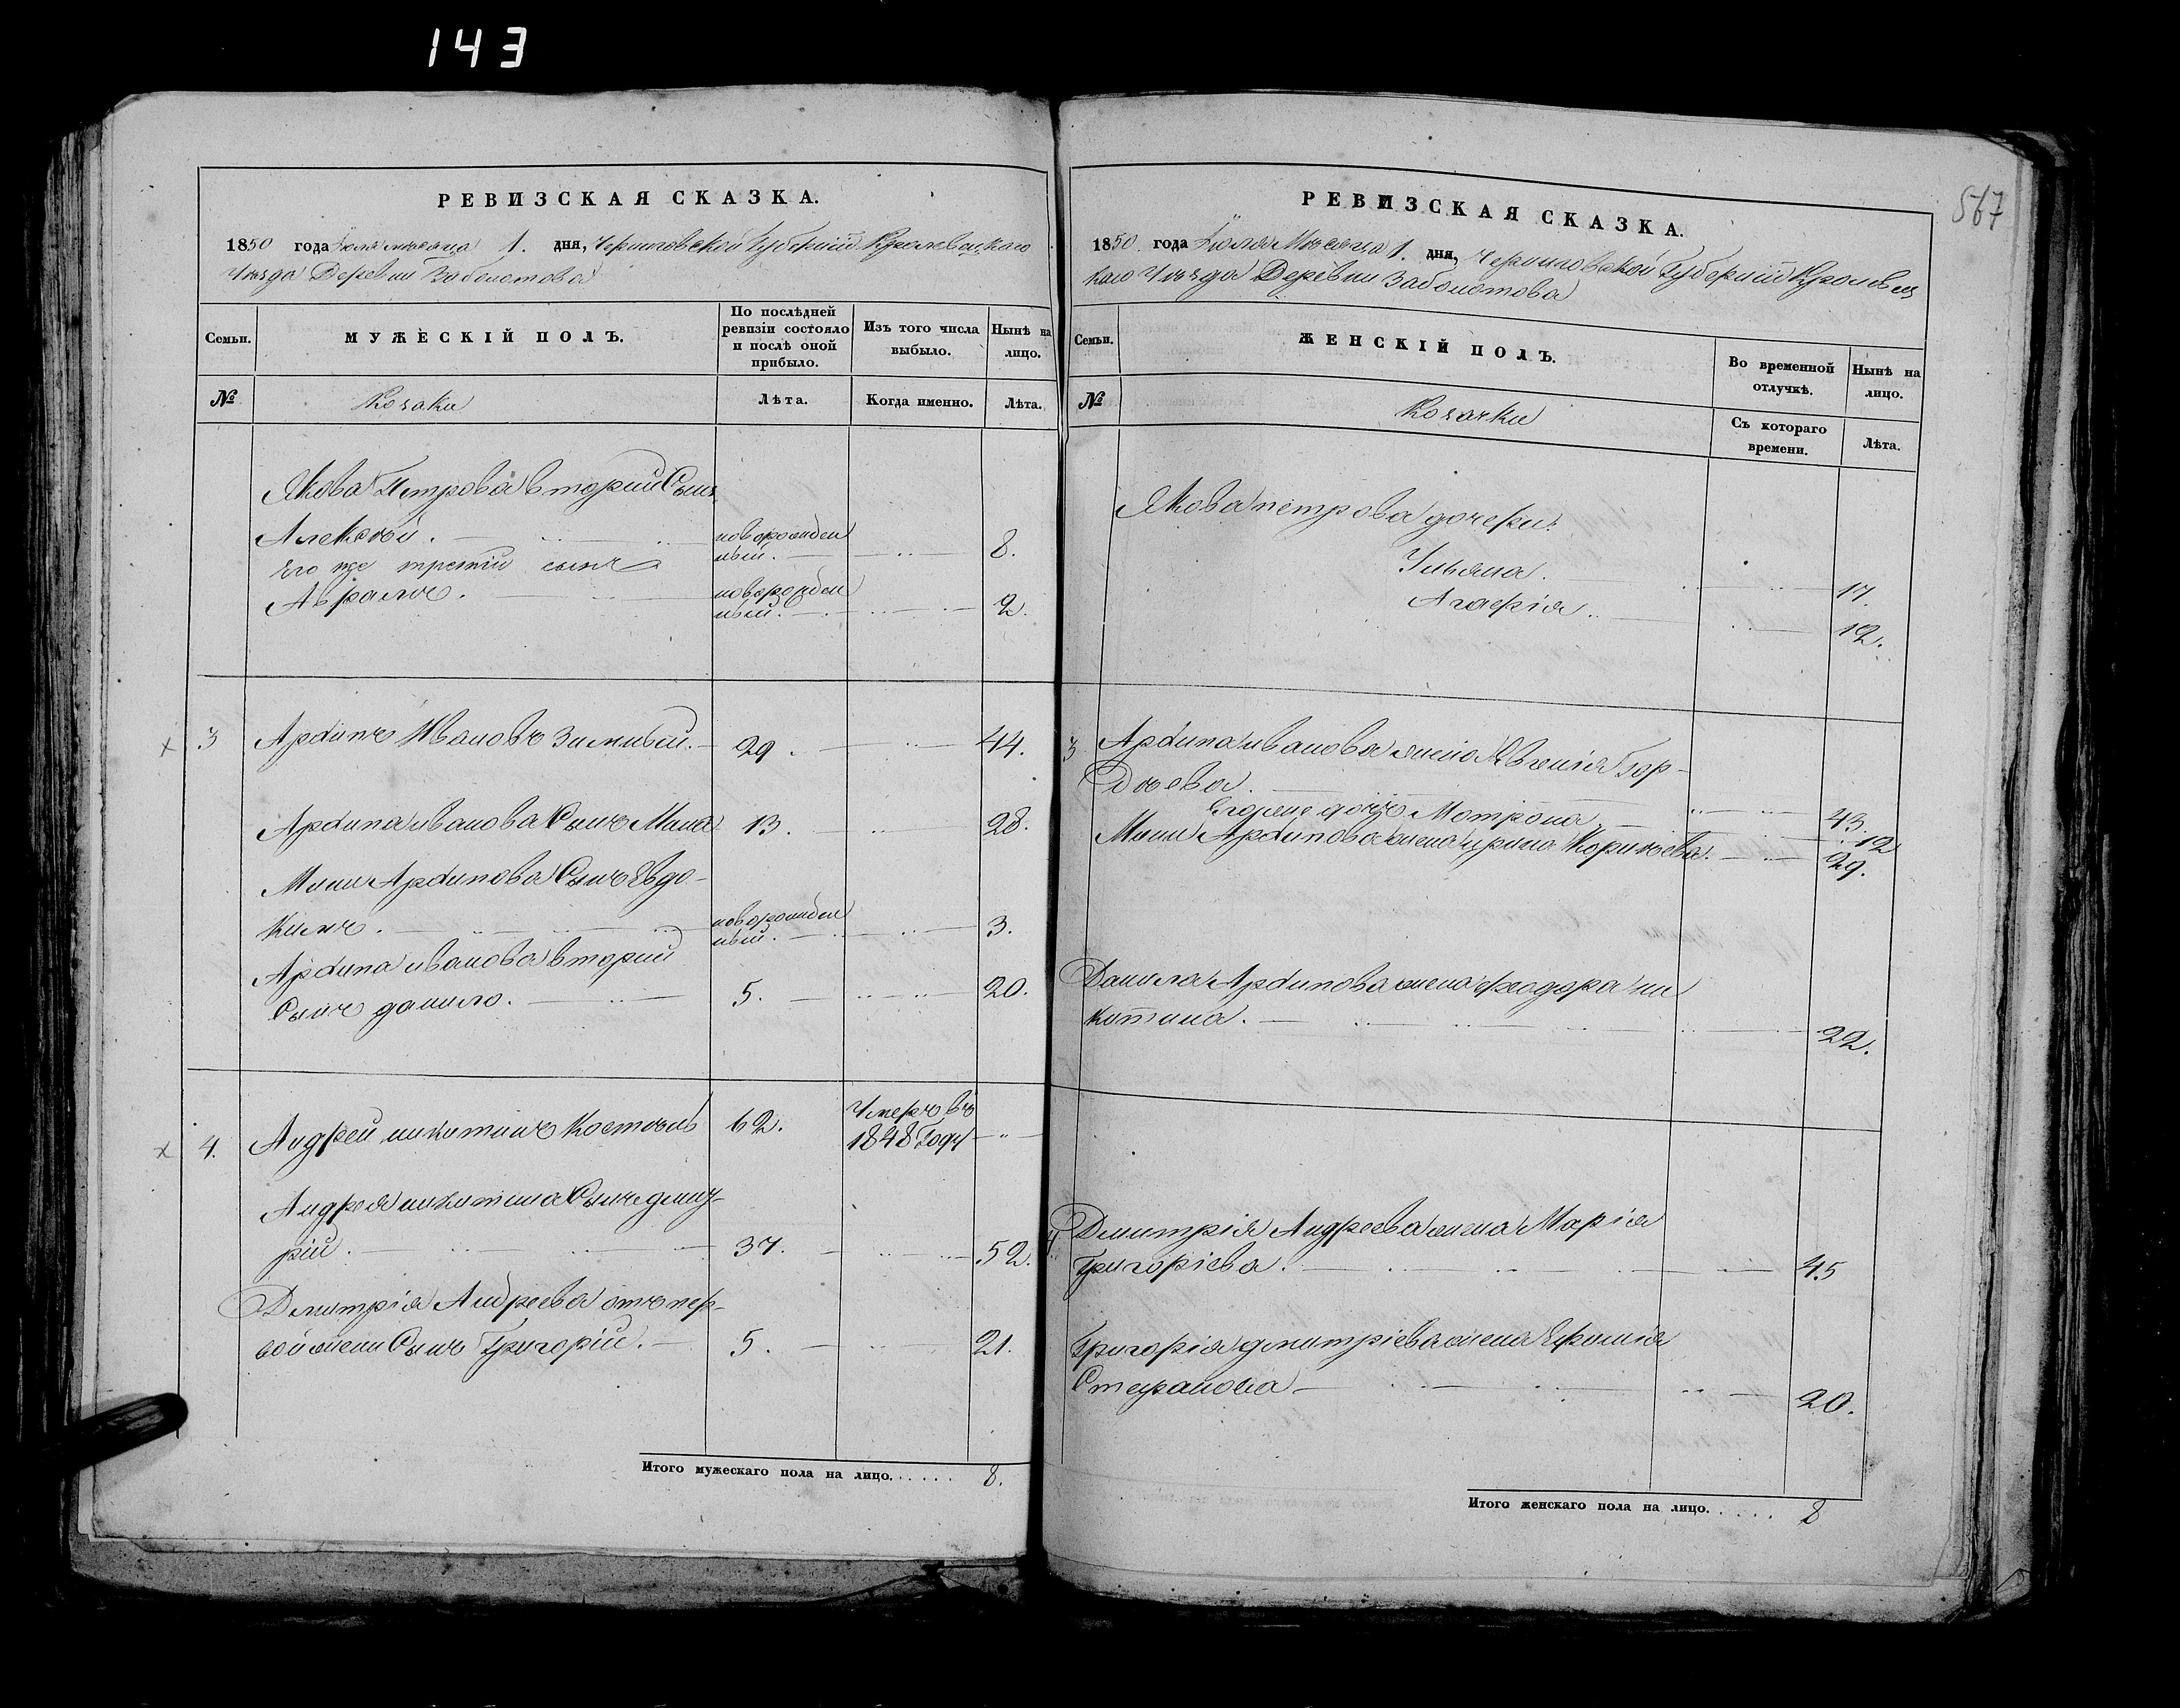 143
567
РЕВИЗСКАЯ СКАЗКА.
1850 года Іюля месяца 1. дня, Черниговской Губерніи Кролевецкаго
Уезда Деревни Заболотова
Семьи.
МУЖЕСКІЙ ПОЛЪ.
По послѣдней ревизіи состояло и послѣ оной прибыло.
Изъ того числа выбыло.
Нынѣ на лицо.
№
Козаки
Лѣта.
Когда именно.
Лѣта.
Якова Петрова вторий Сынъ
Алексѣй. новорожден
ный. 8.
Его же третій сынъ
Аврамъ. новорожден
ный. 2.
3 Архипъ Ивановъ Зимивый. 29. 44.
Архипа иванова Сынъ Мина 13. 28.
Мини Архипова Сынъ Евдо-
кимъ. новорожден
ный. 3.
Архипа иванова вторий
Сынъ данило. 5. 20.
4. Андрей никитинъ 62. Умеръ въ
1848 Году
Андрея никитина Сынъ дмит-
рій. 37. 52.
Дмитрія Андреева отъ пер-
вой жени Сынъ Григорій. 5. 21.
Итого мужескаго пола на лицо...... 8.
РЕВИЗСКАЯ СКАЗКА.
1850 года Іюля Месяца 1. дня, Черниговской Губерніи Кролевец
каго Уезда Деревни Заболотова
Семьи.
ЖЕНСКІЙ ПОЛЪ.
Во временной отлучкѣ.
Нынѣ на лицо.
№
Козачки
Съ котораго времени.
Лѣта.
Якова петрова дочери:
Ульяна. 17.
Агафія. 12.
3 Архипа иванова жена Евгенія Гор-
дѣева. 43.
Его же дочь Мотрона. 12
Мини Архипова жена ирина Корнѣева. 29.
Данила Архипова жена феодора ни
китина. 22.
4 Дмитрія Андреева жена Марія
Григоріева. 45
Григорія дмитріева жена Ефимія
Стефанова 20.
Итого женскаго пола на лицо..... 8